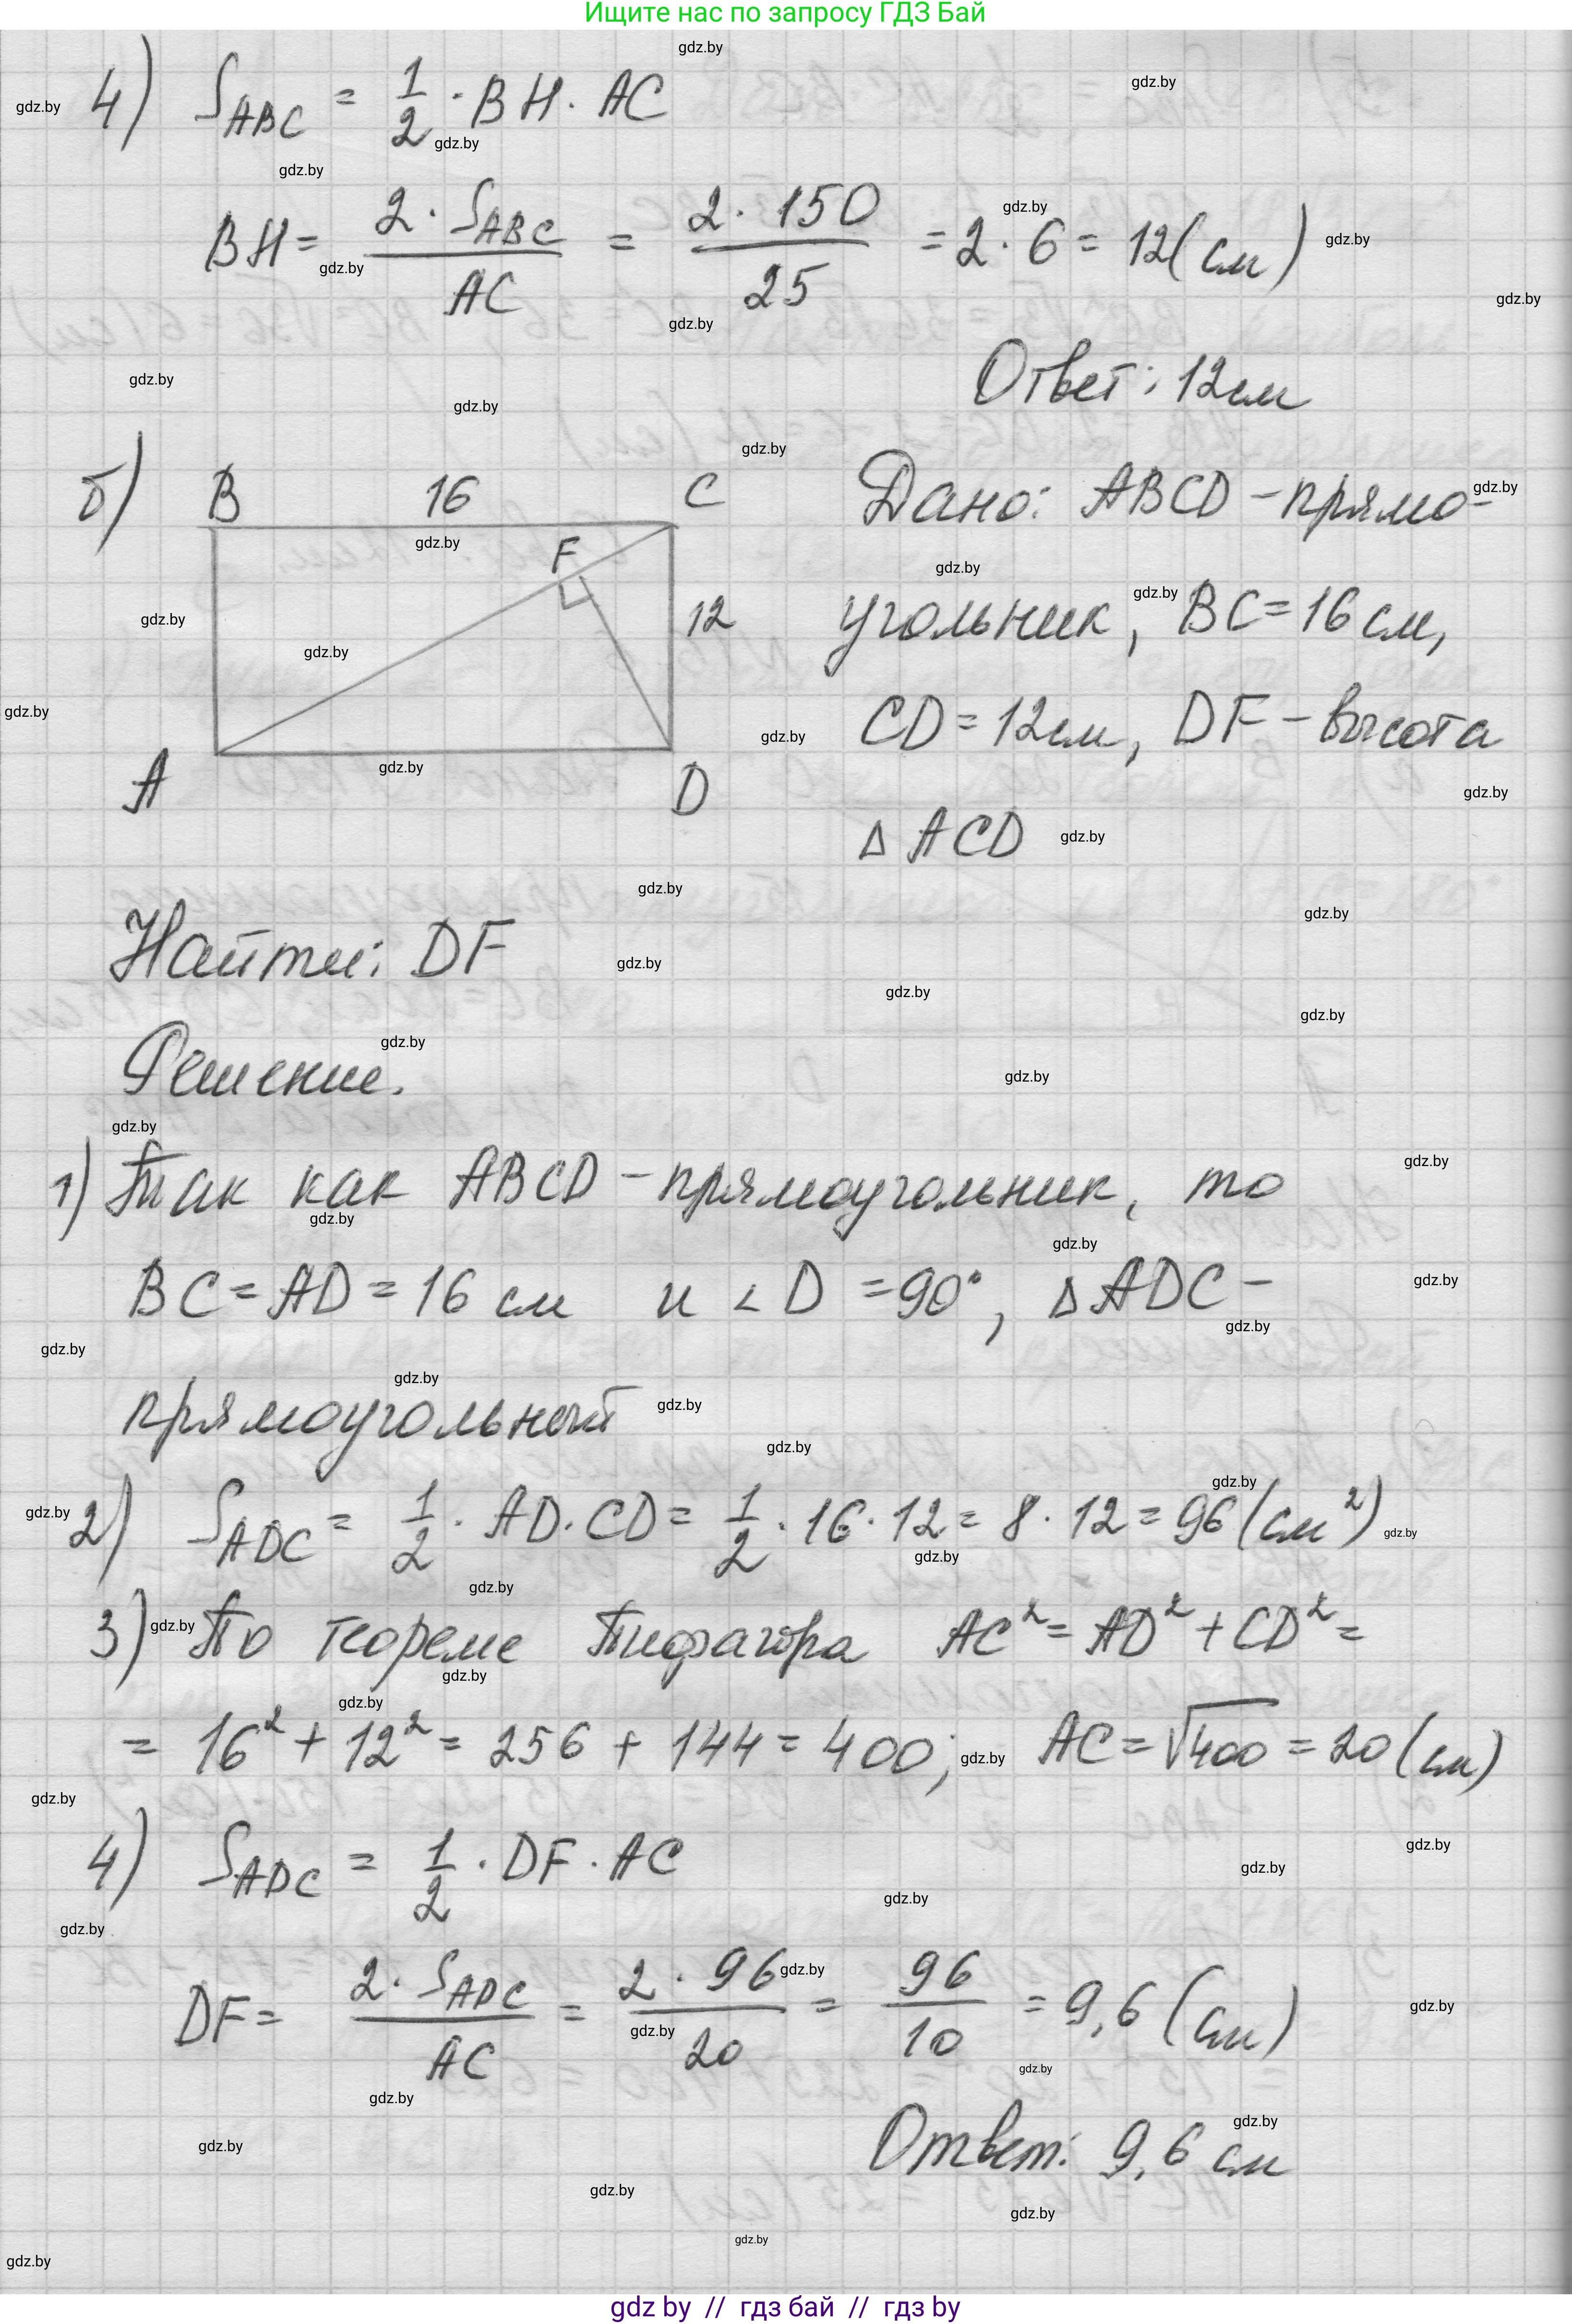 Ищите нас по запросу ГДЗ Бай
4) S_ABC = 1/2 · BH · AC
BH = 2 · S_ABC / AC = 2 · 150 / 25 = 2 · 6 = 12 (см)
Ответ: 12 см
б) B 16 C Дано: ABCD – прямо-
F
12 угольник, BC = 16 см,
CD = 12 см, DF – высота
A D
Δ ACD
Найти: DF
Решение.
1) Так как ABCD – прямоугольник, то
BC = AD = 16 см и ∠D = 90°, Δ ADC –
прямоугольный
2) S_ADC = 1/2 · AD · CD = 1/2 · 16 · 12 = 8 · 12 = 96 (см²)
3) По теореме Пифагора AC² = AD² + CD² =
= 16² + 12² = 256 + 144 = 400; AC = √400 = 20 (см)
4) S_ADC = 1/2 · DF · AC
DF = 2 · S_ADC / AC = 2 · 96 / 20 = 96 / 10 = 9,6 (см)
Ответ: 9,6 см
gdz by // гдз бай // гдз by